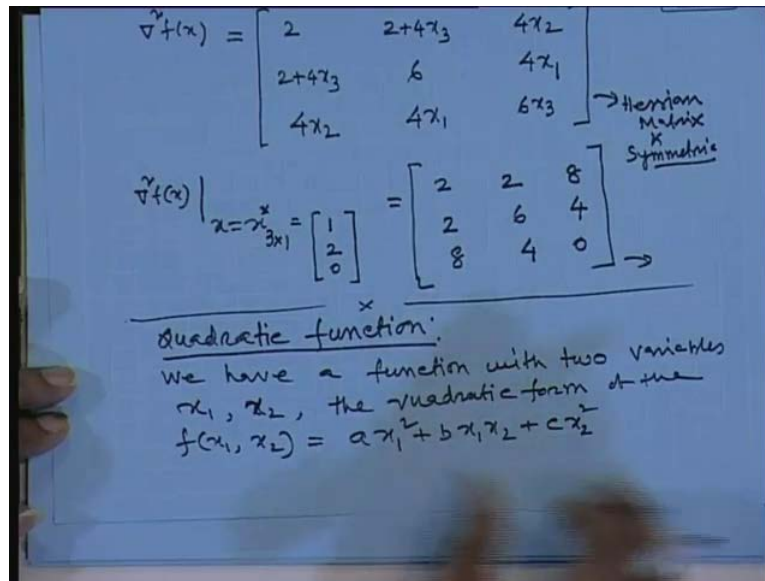 ∇²f(x) = [ 2 2+4x₃ 4x₂
2+4x₃ 6 4x₁
4x₂ 4x₁ 6x₃ ] → Hessian
Matrix
&
Symmetric
∇²f(x) | x=x*₃ₓ₁ = [ 1 2 0 ] = [ 2 2 8
2 6 4
8 4 0 ] →
x
Quadratic function:
We have a function with two variables
x₁, x₂, the quadratic form of the
f(x₁, x₂) = ax₁² + bx₁x₂ + cx₂²